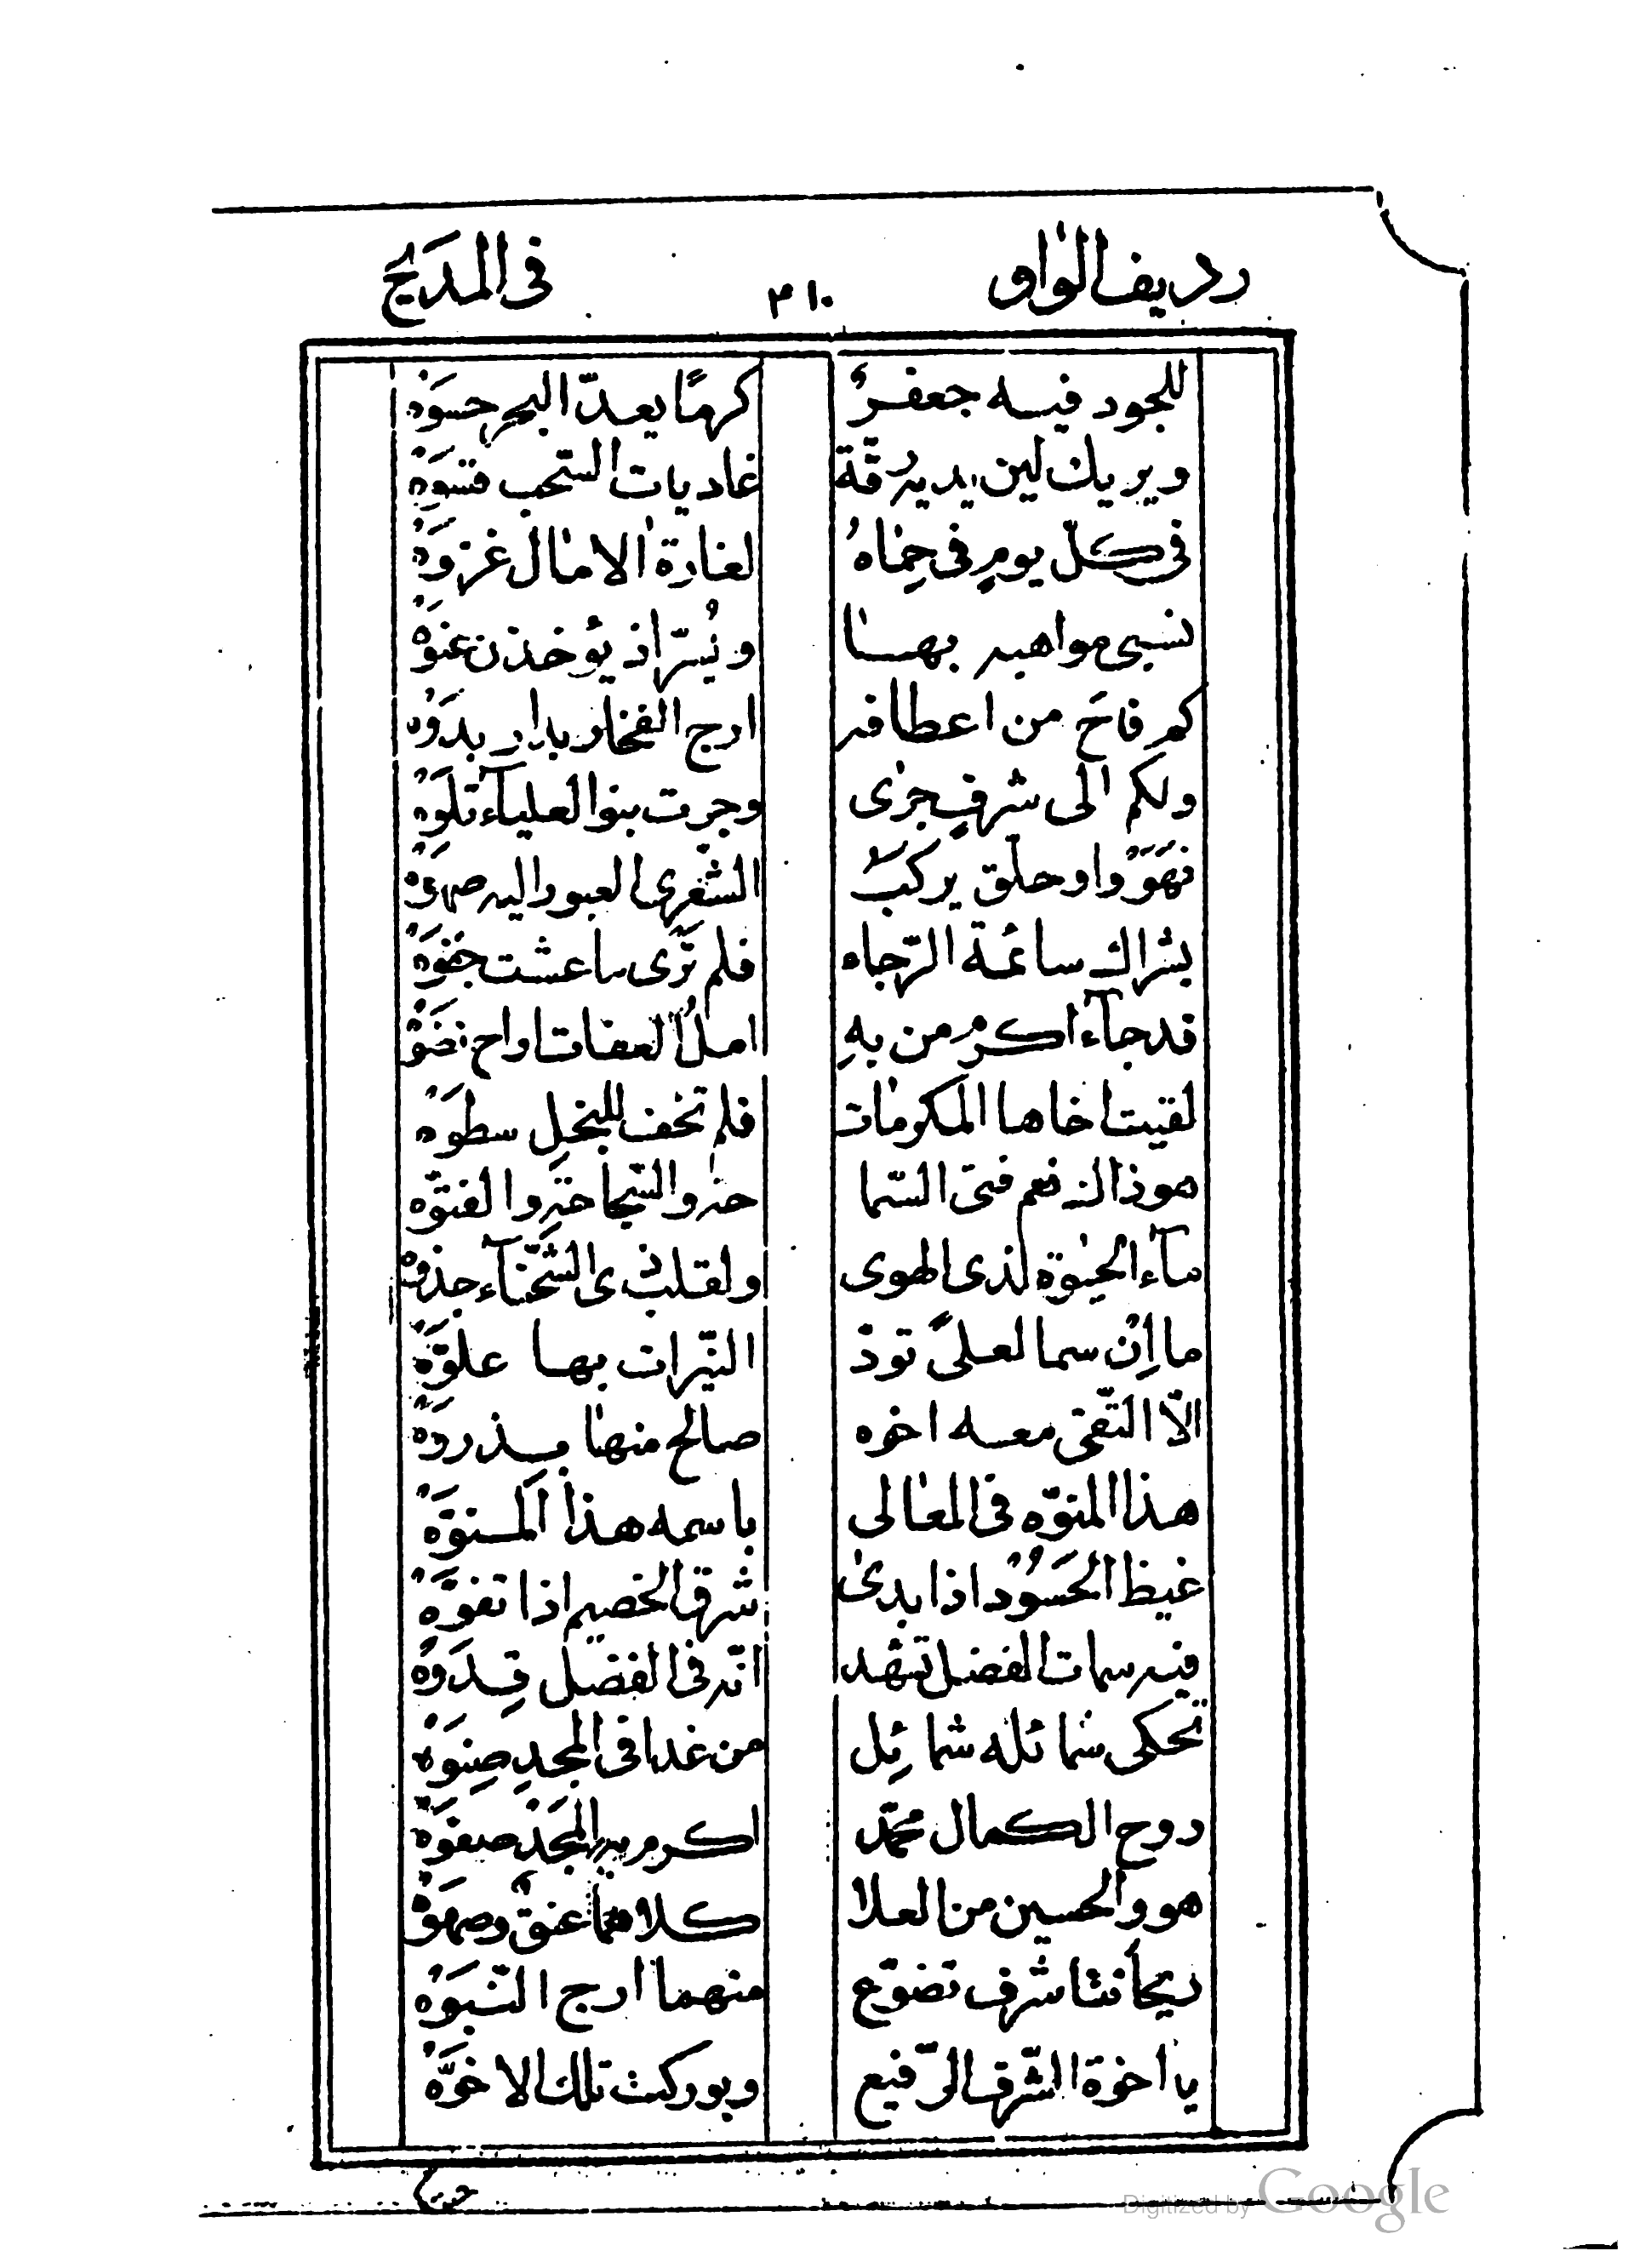 رديف الواو ٣١٠ في المديح
للجود فيه جعفرٌ كرمًا يعدّ البحر حسوَه
ويريك لين يديه رقّة غاديات السّحب قسوَه
في كلّ يومٍ في حِماهُ لغارة الامال غزوَه
نسبي مواهبه بها وتُسرّ اذ يؤخذن عنوَه
كم فاحَ من اعطافه ارج الفخار بدار بدوَه
ولكم الى شرفٍ جرى وجرت بنوا العليآء تلوَه
فهَوَوا وحلّق يركب الشعرى العبور اليه صهوَه
بشراك سائمة الرّجاء فلم تَرَى ما عشت جفوَه
قد جآء اكرمُ من بهِ املُ العفات اراح نضوَه
لقيت اخاها المكرمات فلم تخف للبخل سطوَه
هو ذا الندى نعم فتى السّما حه والسّجاحة والفتوّه
مآء الحيوة لذى الهوى ولقلب ذي الشّحنآء جذوه
ما اِن سما لعلىً تودّ النيّرات بها علوَّه
الّا التّقى معه اخوه صالح منها بذروَه
هذا المنوّه في المعالى باسمه هذا المنوَّه
غيظ الحَسوُد اذا بدى شرق الخصيم اذا تفوَّه
فيه سمات الفضل تشهد انّه في الفضل قِدوَه
تحكى شمائله شمائِل من غدا في المجدِ صِنوَه
دوح الكمال محمّد اكرم به للمجَد صفوَه
هو والحسين من العلا كلاهما عنق وصهوَه
ريحانتا شرف تضوّع منهما ارج النّبوَه
يا اخوة الشّرف الرّفيع وبوركت تلك الاخوَّه